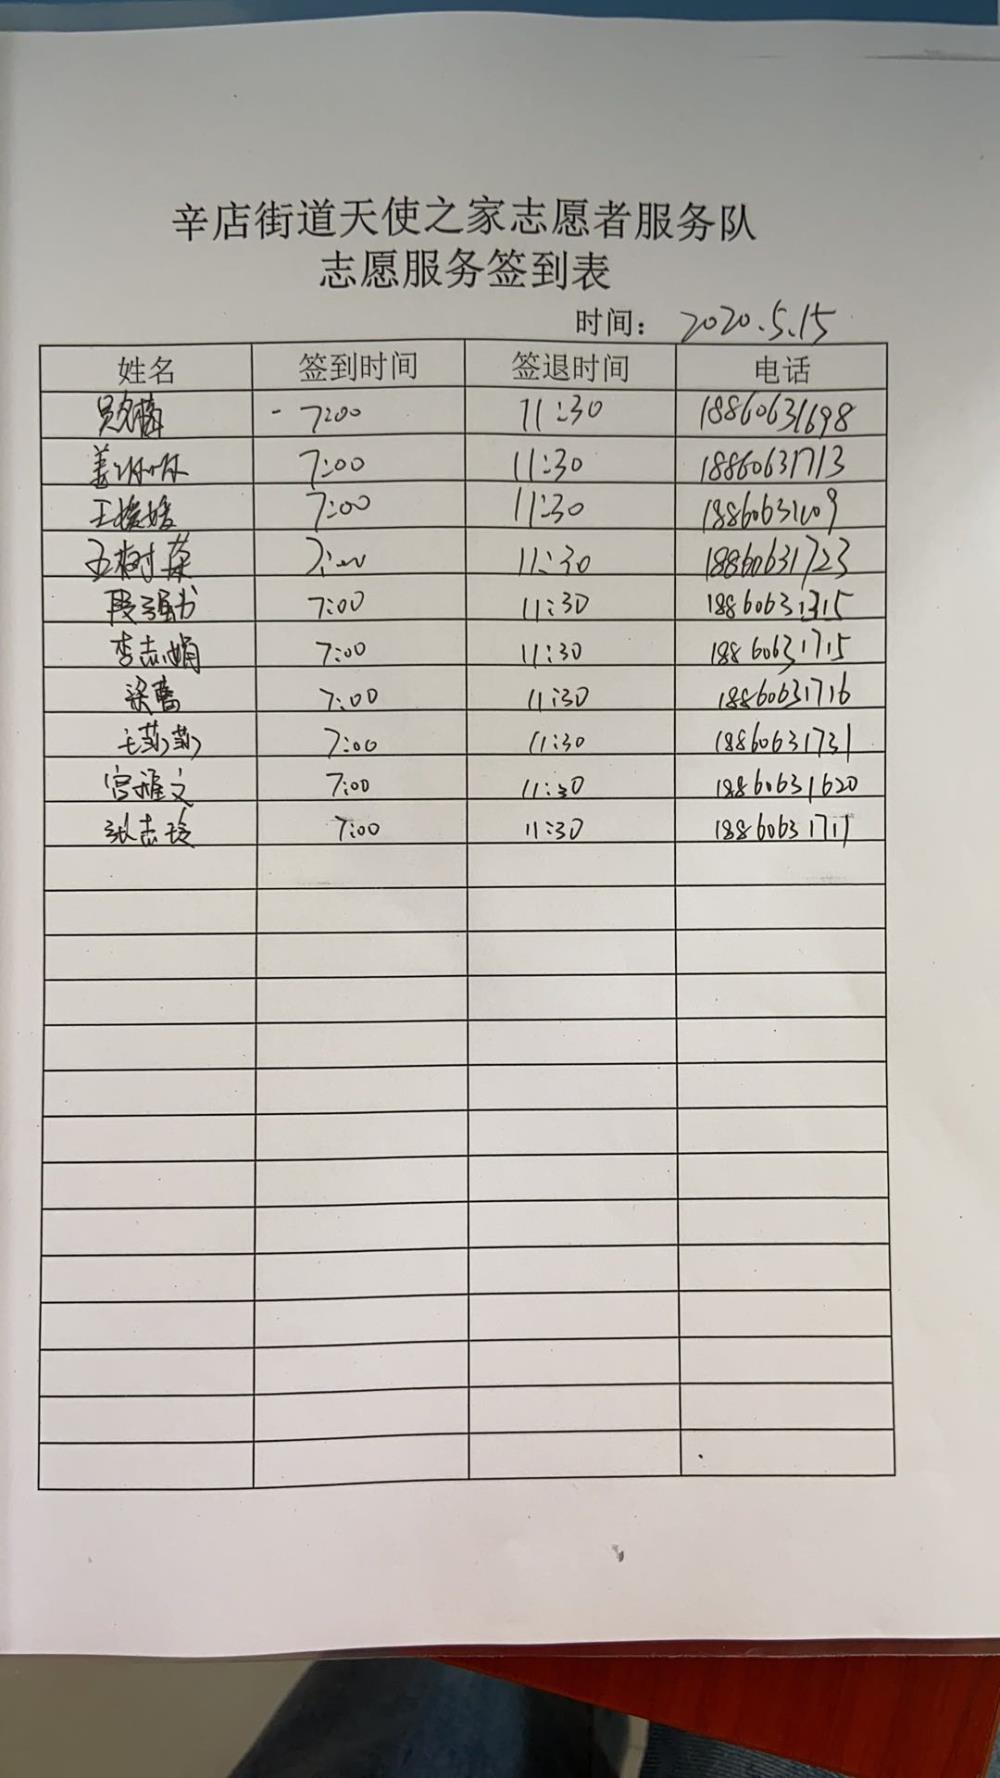 辛店街道天使之家志愿者服务队
志愿服务签到表
时间： 2020.5.15
姓名 签到时间 签退时间 电话
7:00 11:30 18860631698
姜 7:00 11:30 18860631713
王媛媛 7:00 11:30 18860631009
王树菜 7:00 11:30 18860631723
段强 7:00 11:30 18860631315
李志娟 7:00 11:30 18860631715
梁蕾 7:00 11:30 18860631716
王菊菊 7:00 11:30 18860631731
宫雅文 7:00 11:30 18860631620
张志玲 7:00 11:30 18860631717